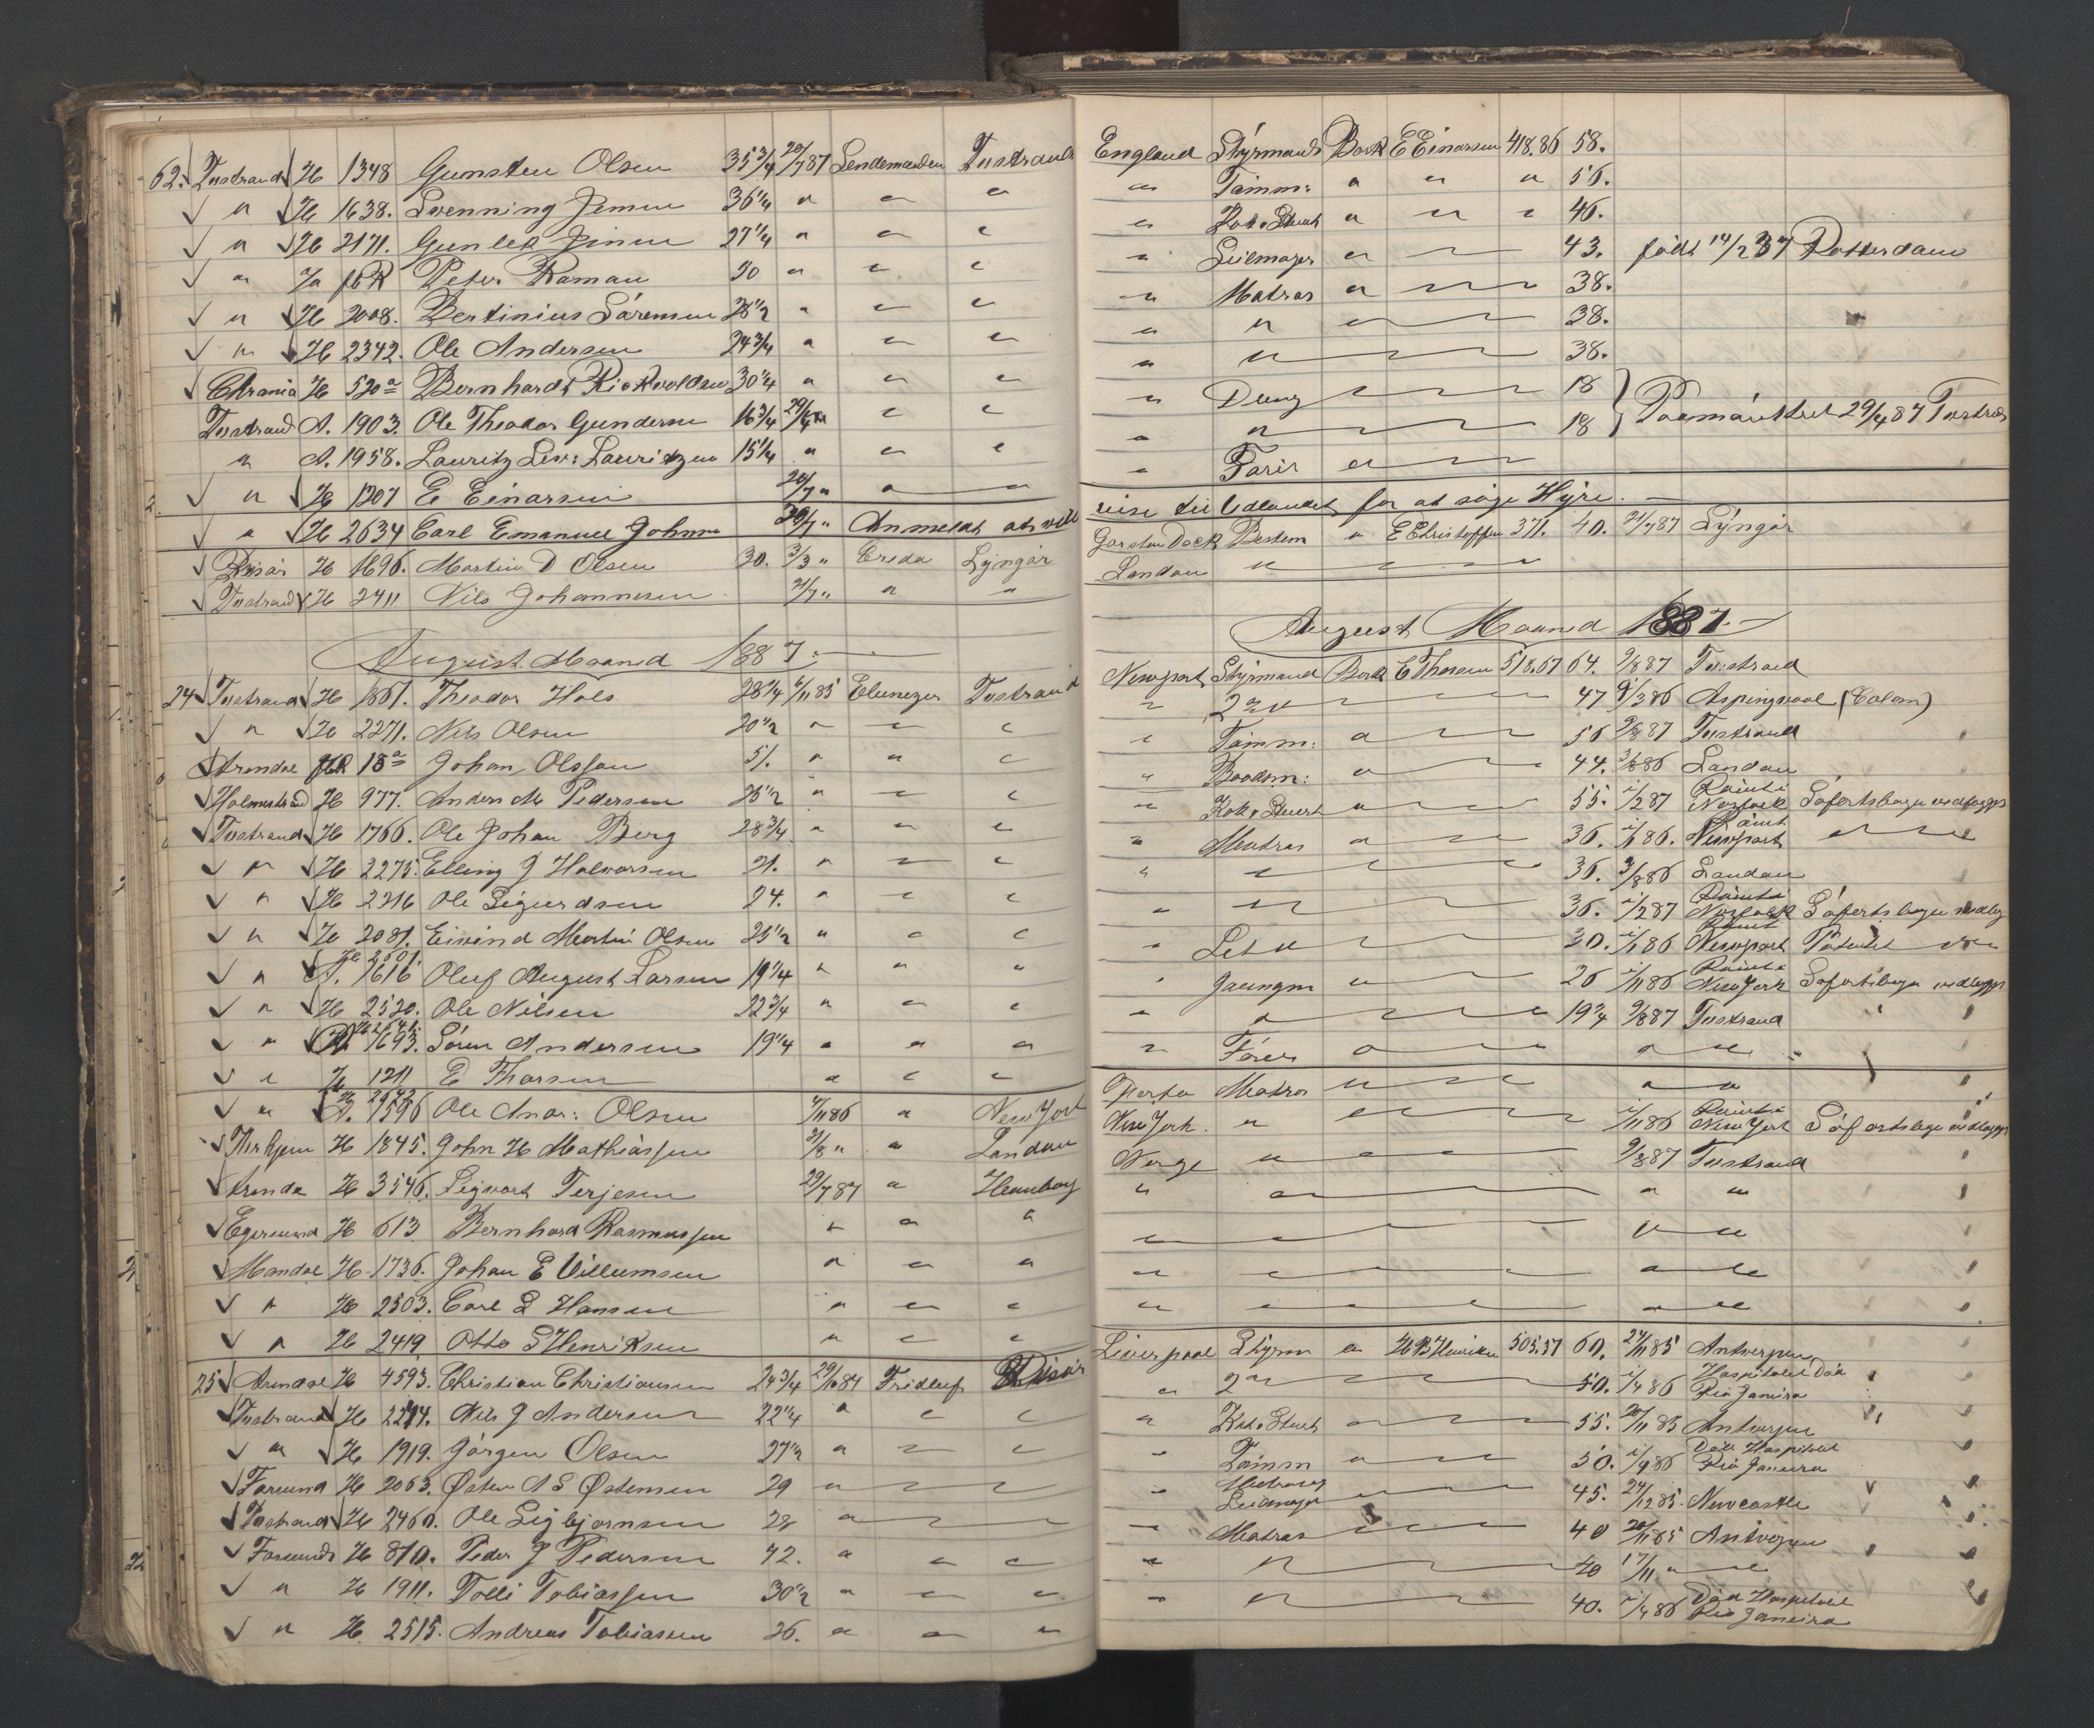 62. Tvestrand H 1348 Gunsten Olsen 35 3/4 29/7 87 Lendemanden Tvestrand
" H 1638. Svenning Jensen 36 1/4 " " "
" H 2171. Gunlek Jensen 27 1/4 " " "
" Peter Roman 50 " " "
" H 2008. Bertinius Sörensen 28 1/2 " " "
" H 2342. Ole Andersen 24 3/4 " " "
Chrania H 520 a Bernhardt 30 1/4 " " "
Tvestrand A. 1903. Ole Theodor Gundersen 16 3/4 29/4 " " "
" A. 1958. Lauritz Lew: Lauritzen 15 1/4 " " "
" H 1207 E Einarsen 20/7 " " "
" H 2634 Carl Emanuel Johnsen 20/7 " Anmeldt at ville
Risör H 1696. Martin D Olsen 30. 3/3 " Creda Lyngör
Tvestrand H 2411 Nils Johannesen 21/7 " " "
August Maaned 1887.
24 Tvestrand H 1861. Theodor Hals 28 1/4 6/11 85 Ebenezer Tvestrand
" H 2271. Nils Olsen 20 1/2 " " "
Arendal HR 18 a Johan Olsson 51. " " "
Holmestrand H 977. Anders M Pedersen 25 1/2 " " "
Tvestrand H 1766. Ole Johan Berg 28 3/4 " " "
" H 2275. Elling J Halvorsen 21. " " "
" H 2216 Ole Sigurdsen 24. " " "
" H 2081. Eivind Martin Olsen 25 1/2 " " "
H 2601
" A. 1616 Oluf August Larsen 19 1/4 " " "
" H 2520. Ole Nilsen 22 3/4 " " "
" A 1693. Sören Andersen 19 1/4 " " "
" H 1211 E Thorsen " " "
H 2642
" A. 1596 Ole Andr: Olsen 4/11 86 " New York
H 1845. John H Mathiassen 31/8 " " London
Arendal H 3546. Sigvart Terjesen 29/7 87 " Hamborg
Egersund H 613 Bernhard Rasmussen " " "
Mandal H 1736. Johan E Villumsen " " "
" H 2503. Carl S Hansen " " "
" H 2419 Otto S Henriksen " " "
25 Arendal H 4593. Christian Christiansen 24 3/4 29/10 84 Fridleif Risör
Tvestrand H 2274. Nils J Andersen 22 1/4 " " "
" H 1919. Jörgen Olsen 27 1/2 " " "
Farsund H 2063. Østen A S Østensen 29 " " "
Tvestrand H 2460. Ole Sigbjørnsen 28 " " "
Farsund H 810. Peder J Pedersen 42. " " "
" H 1911. Tolli Tobiassen 30 1/2 " " "
" H 2515. Andreas Tobiasen 26. " " "
England Styrmand Bark E Einarsen 418.86 58.
" Tömm: " " " 56.
" Kok & Stuert " " " 46.
" Seilmager " " 43. födt 14/2 37 Rotterdam
" Matros " " 38.
" " " 38.
" " " 38.
" Dreng " 18
" " " 18 Paamönstret 29/4 87 Tvestrand
" Förer " "
reise til Udlandet for at söge Hyre.
Garston Dock Bestem " E Christoffersen 371. 40. 21/7 87 Lyngör
London " " "
August Maaned 1887.
Newport Styrmand Bark E Thorsen 518.67 64. 9/8 87 Tvestrand
" 2 " " 47 9/3 86 Aspingvaal (Colom)
" Tömm: " " 56 9/8 87 Tvestrand
" Baadsm: " " 44. 3/8 86 London
" Kok & Stuert " " 55. 1/2 87 Römt i Norfolk Söfartsbogen vedlagges
" Matros " " 36. 1/1 86. Römt Newport " "
" " " 36. 3/8 86 London
" " " 36. 1/2 87 Römt i Norfolk Söfartsbogen vedlag
" Let " " 30. 1/1 86 Römt Newport "
" Jungm " " 26 1/11 86 Römt i New York Söfartsbogen vedlagges
" " " 19 3/4 9/8 87 Tvestrand
" Förer " " " "
Matros " " " "
New York. " " 1/11 86 Römt i New York Söfartsbogen vedlagges
Norge " " " 9/8 87 Tvestrand
" " " "
" " " "
" " " "
" " " "
Liverpool Styrm " H B Henriksen 505.57 60. 24/11 85 Antverpen
" 2 " " 50. 1/4 86 Hospitalet Död Rio Janeiro
" Kok & Stuert " " 55. 20/11 85 Antverpen
" Tömm " " 50. 1/4 86 Död Hospitalet Rio Janeiro
" Matros og Seilmager " 45. 24/12 85. Newcastle
" Matros " " 40 20/11 85 Antverpen
" " " 40 17/11 " "
" " " 40. 1/4 86 Död Hospitalet Rio Janeiro